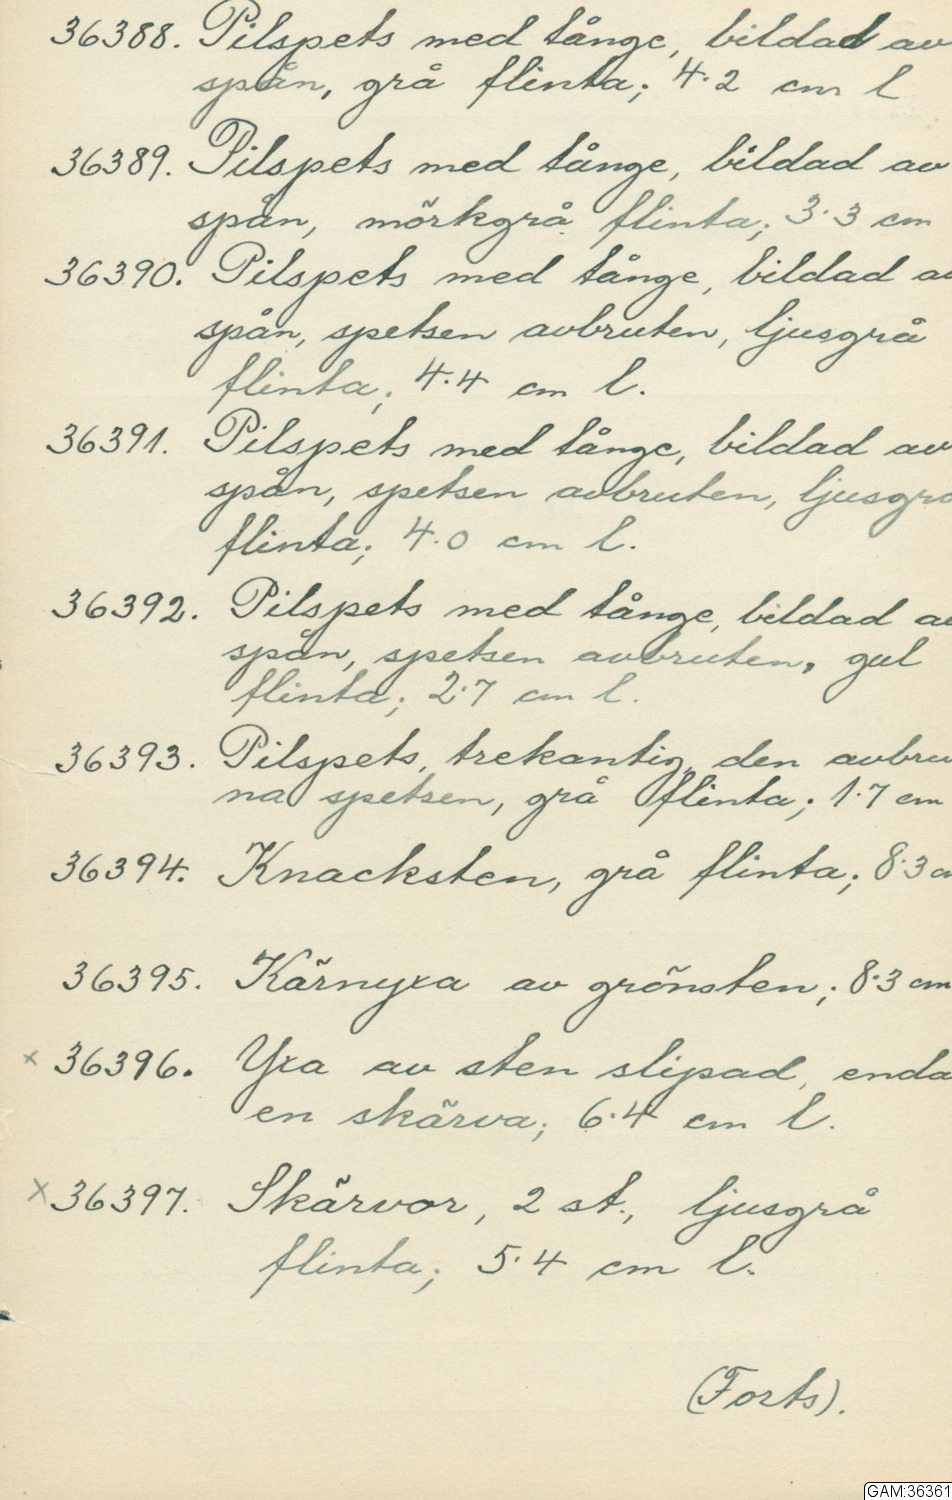 36388. Pilspets med tånge, bildad av
spån, grå flinta; 4.2 cm l
36389. Pilspets med tånge, bildad av
spån, mörkgrå flinta; 3.3 cm
36390. Pilspets med tånge, bildad a
spån, spetsen avbruten, ljusgrå
flinta; 4.4 cm l.
36391. Pilspets med tånge, bildad av
spån, spetsen avbruten, ljusgr
flinta; 4.0 cm l.
36392. Pilspets med tånge, bildad a
spån, spetsen avbruten, gul
flinta; 2.7 cm l.
36393. Pilspets, trekantig, den avbru
na spetsen, grå flinta; 1.7 cm
36394. Knacksten, grå flinta; 8.3 c
36395. Kärnyxa av grönsten; 8.3 cm
x 36396. Yxa av sten slipad, enda
en skärva; 6.4 cm l.
x 36397. Skärvor, 2 st., ljusgrå
flinta; 5.4 cm l.
(Forts).
GAM:36361